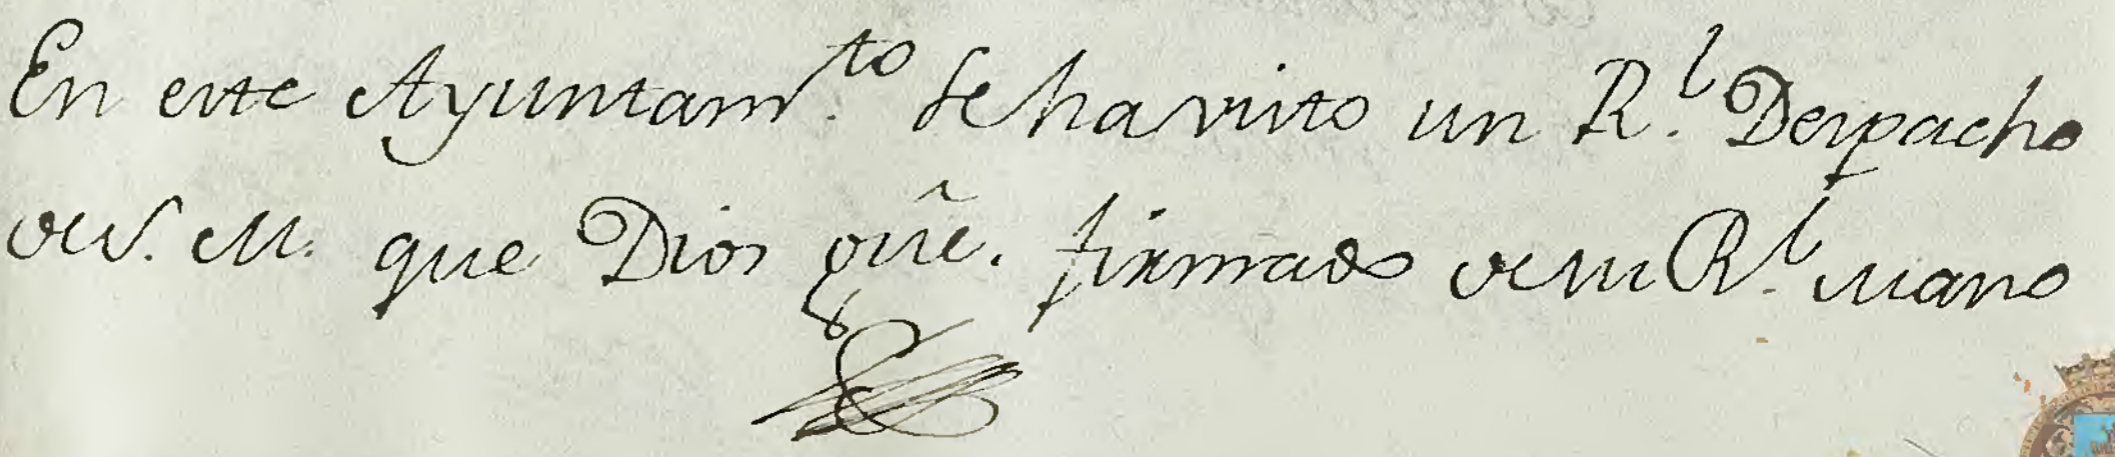 En este Ayuntam.to se ha visto un R.l Despacho
de S. M. que Dios gũe. firmado de su R.l mano